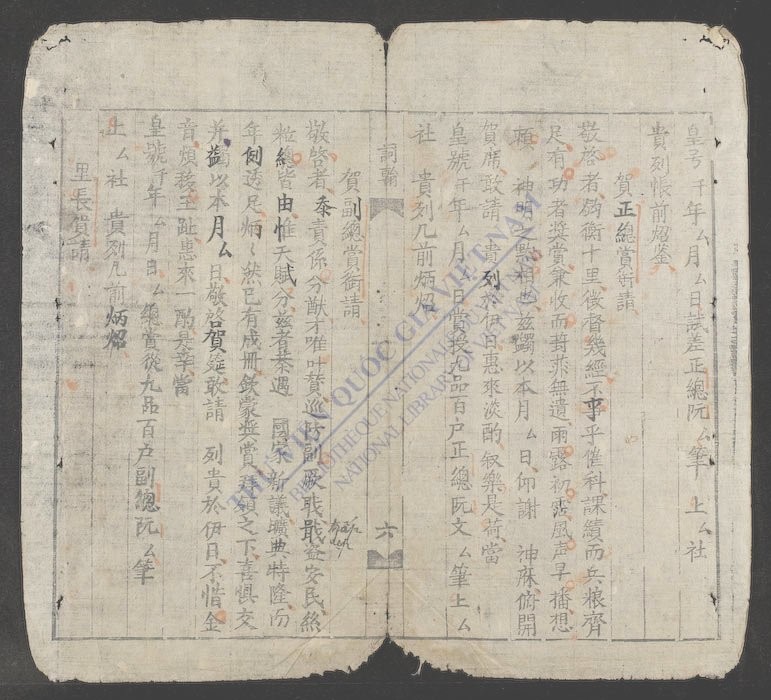 皇号千年ム月ム日試差正總阮ム筆 上ム社
貴列帳前炤鉴
賀正總賞銜請
敬啓者鈎衡十里徵督幾經不事乎催科課績而兵粮齊
足有功者奨賞兼收而葑菲無遺雨露初霑風声早播想
賴 神明之黙相也兹蠲以本月ム日仰謝 神庥俯開
賀席敢請 貴列於伊日惠來淡酌叙樂是荷當
皇號千年ム月ム日賞授九品百户正總阮文ム筆上ム
社 貴列几前炳炤
詞翰
六
賀副總賞銜請
敬啓者忝責係分猷才唯叶賛巡防副厥職戢盗安民絲
粒總皆由惟天賦分兹者恭遇 國家新議曠典特隆而
年例透足炳炳然已有成册欽蒙奨賞拜領之下喜惧交
并蠲以本月ム日敬啓賀筵敢請 列貴於伊日不惜金
音煩移玉趾惠來一酌是幸當
皇號千年ム月日ム總賞從九品百户副總阮ム筆
上ム社 貴列几前炳炤
里長賀請
THƯ VIỆN QUỐC GIA VIỆT NAM
BIBLIOTHEQUE NATIONALE DU VIETNAM
NATIONAL LIBRARY OF VIETNAM